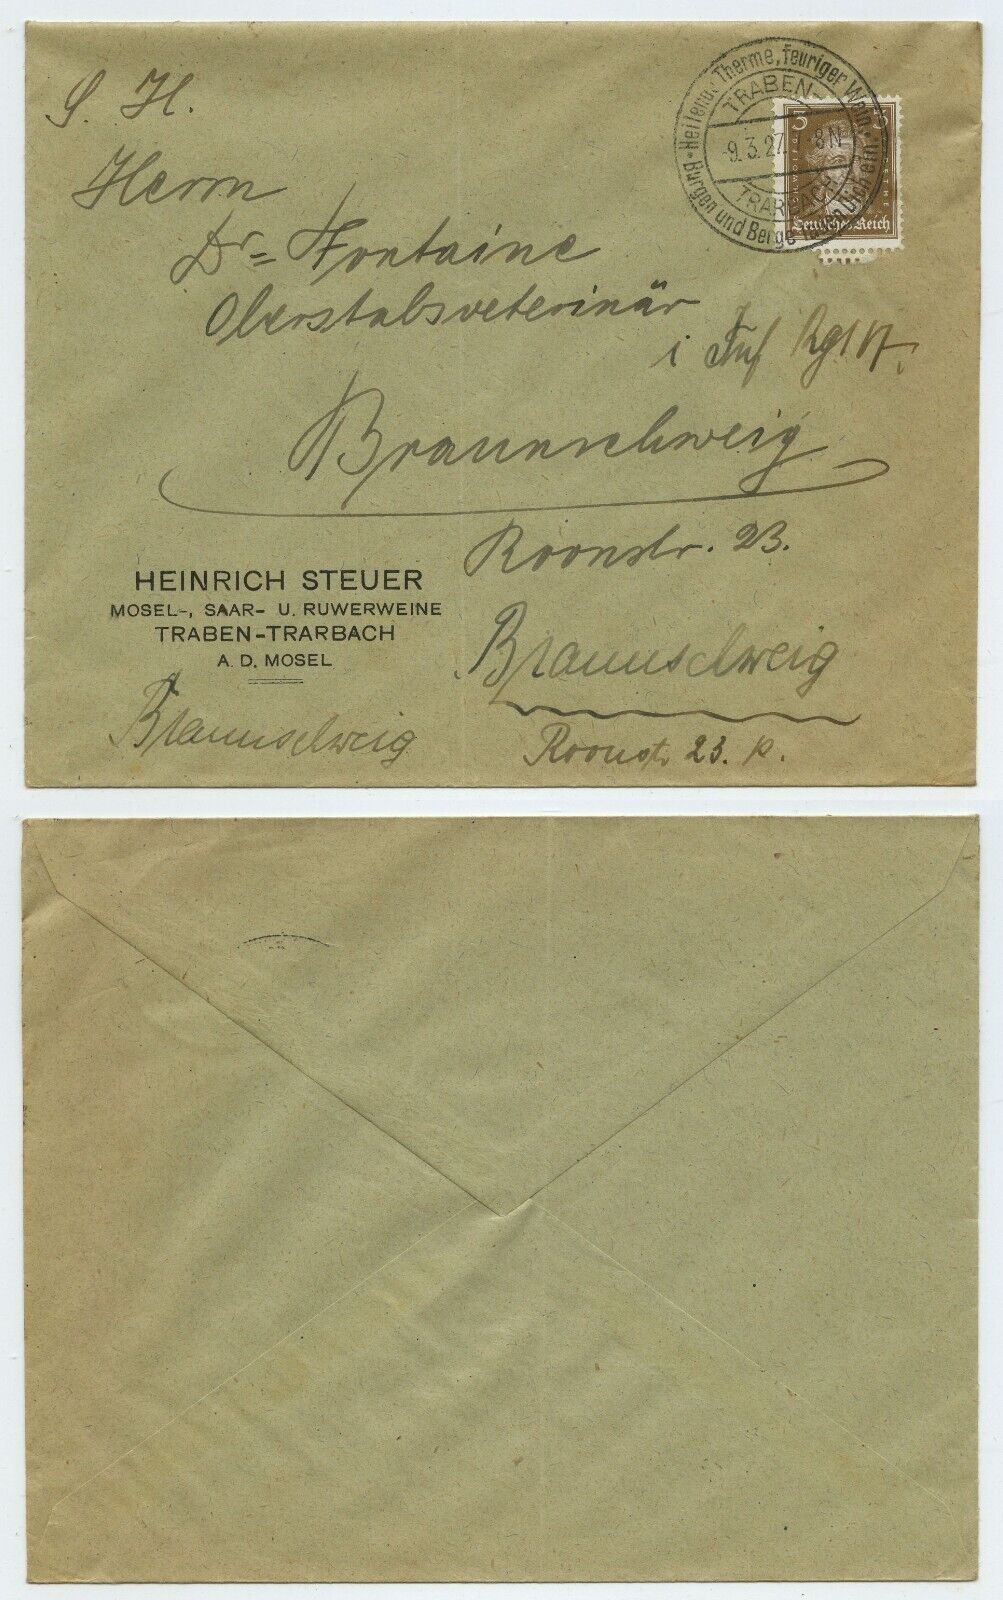 S. H.
Herrn
Dr= Fontaine
Oberstabsveterinär
i Inf Rgt 17.
Braunschweig
Roonstr. 23.
HEINRICH STEUER
MOSEL-, SAAR- U. RUWERWEINE
TRABEN-TRARBACH
A. D. MOSEL
Braunschweig
Braunschweig
Roonstr 23. p.
Therme, feuriger Wein, Burgen und Berge laden Dich ein!
TRABEN-
-9.3.27. 7-8N
TRARBACH
3 3
Deutsches Reich